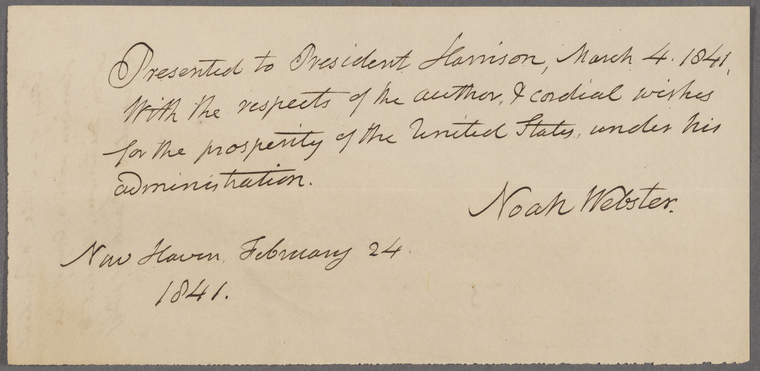 Presented to President Harrison, March 4. 1841,
With the respects of the author, & cordial wishes
for the prosperity of the United States, under his
administration.
Noah Webster.
New Haven, February 24.
1841.